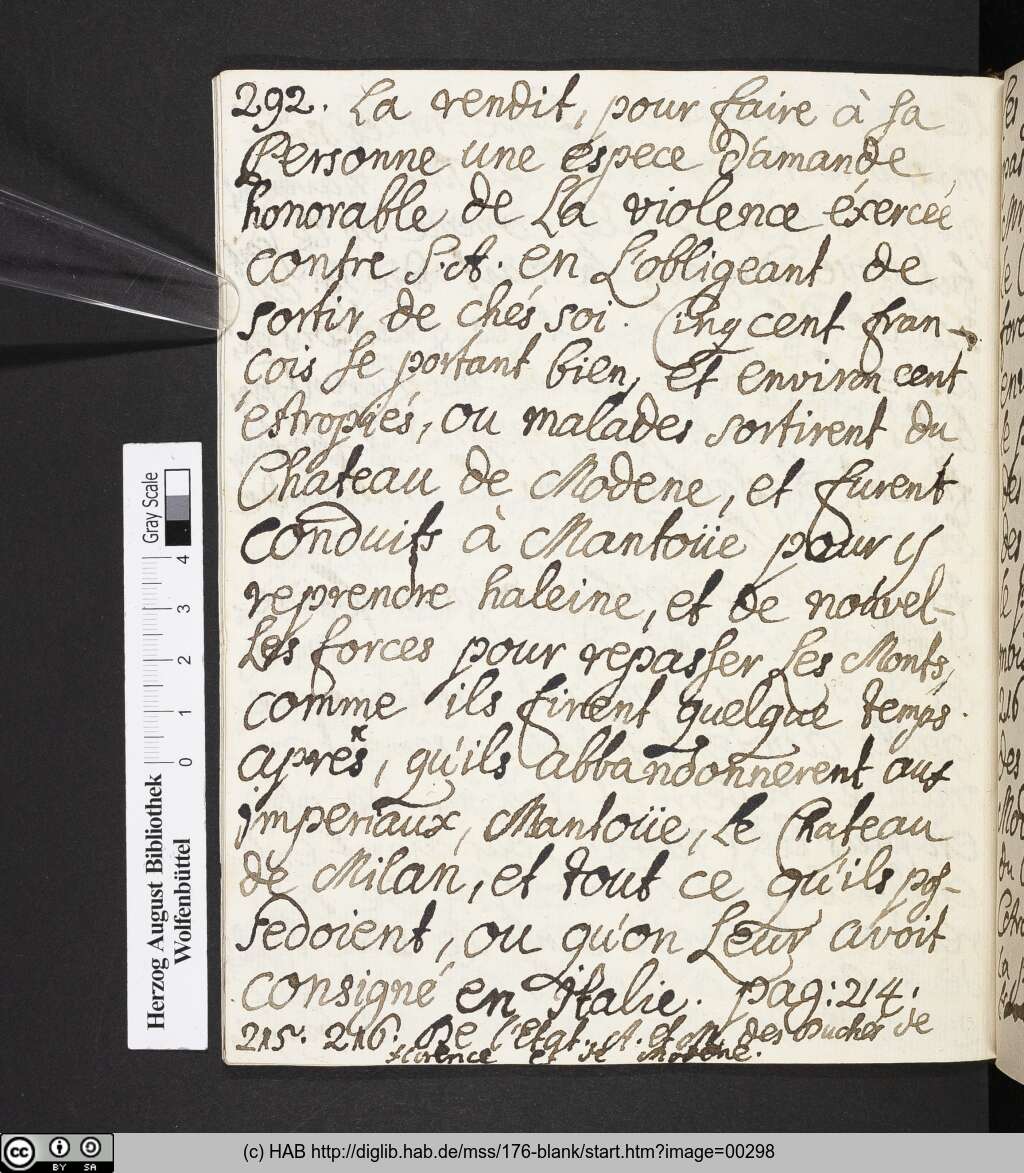 292. La rendit, pour faire à sa
Personne une éspece d'amande
honorable de La violence éxercéé
contre S. A. en L'obligeant de
sortir de chés soi. Cinq cent fran-
cois se portant bien, et environ cent
estropiés, ou malades sortirent du
Chateau de Modene, et furent
conduits à Mantoüe pour y
reprendre haleine, et de nouvel-
Les forces pour repasser Les Monts,
comme ils firent quelque temps
aprés, qu'ils abbandonnerent aux
imperiaux, Mantoüe, Le Chateau
de Milan, et tout ce qu'ils pos-
sedoient, ou qu'on Leur avoit
consigné en Italie. pag: 214.
215. 216. De l'Etat. A. et M. des Duches de
Florence et de Modene.
Gray Scale
0 1 2 3 4
Herzog August Bibliothek
Wolfenbüttel
(c) HAB http://diglib.hab.de/mss/176-blank/start.htm?image=00298
cc BY SA